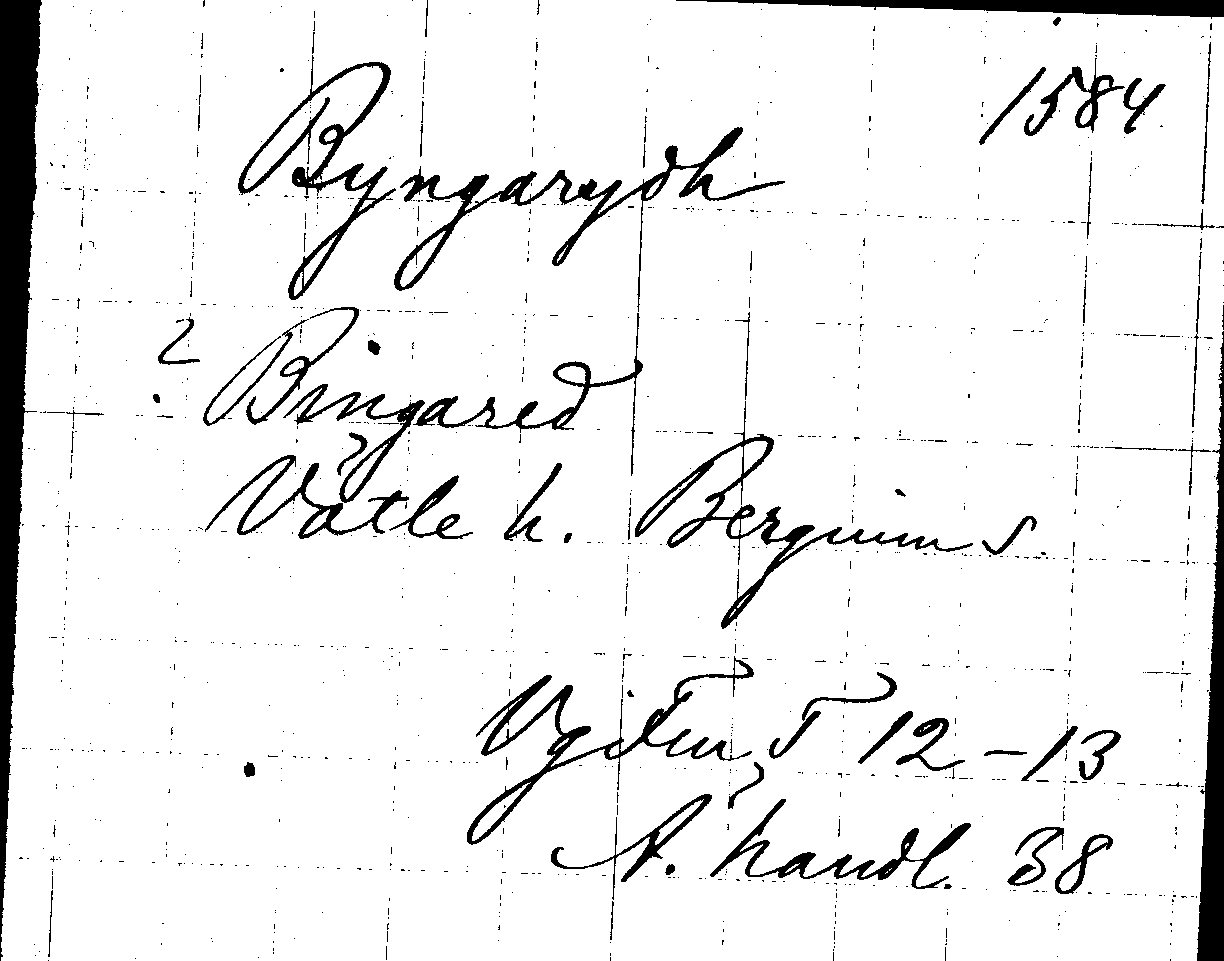 1584
Byngarydh
? Bingared
Vätle h. Bergum s.
Vg T 12-13
A. handl. 38